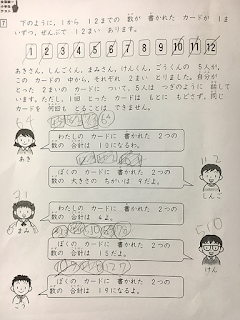 7 下のように，1から 12までの 数が 書かれた カードが 1ま
いずつ，ぜんぶで 12まい あります。
1 2 3 4 5 6 7 8 9 10 11 12
あきさん，しんごくん，まみさん，けんくん，こうくんの 5人が，
この カードの 中から，それぞれ 2まい とりました。自分が
とった 2まいの カードに ついて，5人は つぎのように 話して
います。ただし，1回 とった カードは もとに もどさず，同じ
カードを 何回も とることは できません。
わたしの カードに 書かれた 2つの
数の 合計は 10になるわ。
あき
ぼくの カードに 書かれた 2つの
数の 大きさの ちがいは 9だよ。
しんご
わたしの カードに 書かれた 2つの
数の 合計は 4よ。
まみ
ぼくの カードに 書かれた 2つの
数の 合計は 15だよ。
けん
ぼくの カードに 書かれた 2つの
数の 合計は 19になるよ。
こう